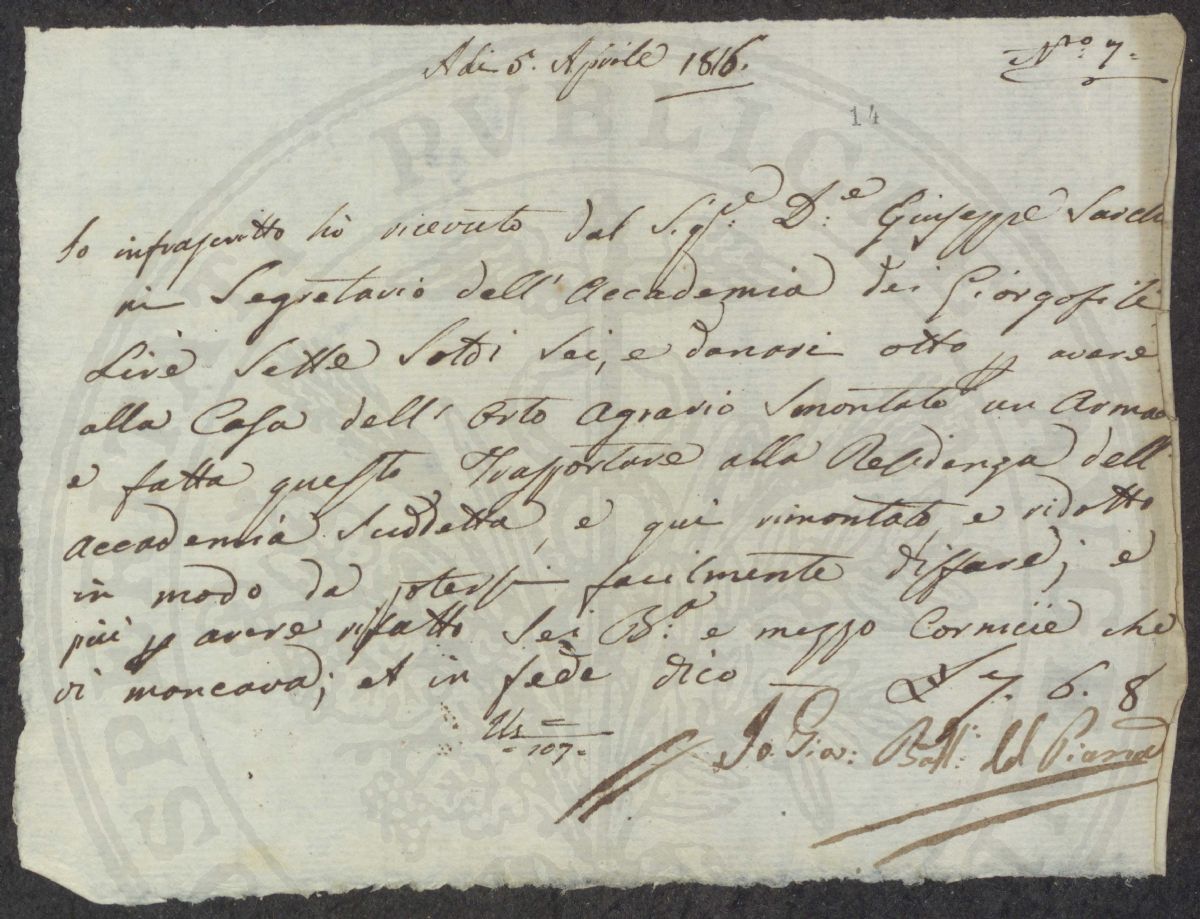 Adi 5. Aprile 1816.
N.ro 7.
14
Io infrascritto hò ricevuto dal Sig.re D.re Giuseppe Sarchi
ni Segretario dell' Accademia dei Giorgofili
Lire Sette Soldi Sei, e danari otto p avere
alla Casa dell' Orto Agrario Smontato un Armao
e fatto questo Trasportare alla Residenza dell'
Accademia Suddetta, e qui rimontato, e ridotto
in modo da potersi facilmente disfare; e
più p avere rifatto Sei B.a e mezzo Cornicie che
vi mancava; et in fede dico — £ 7. 6. 8
107
Io Gio: Batt: del Pianta
PVBLICAE